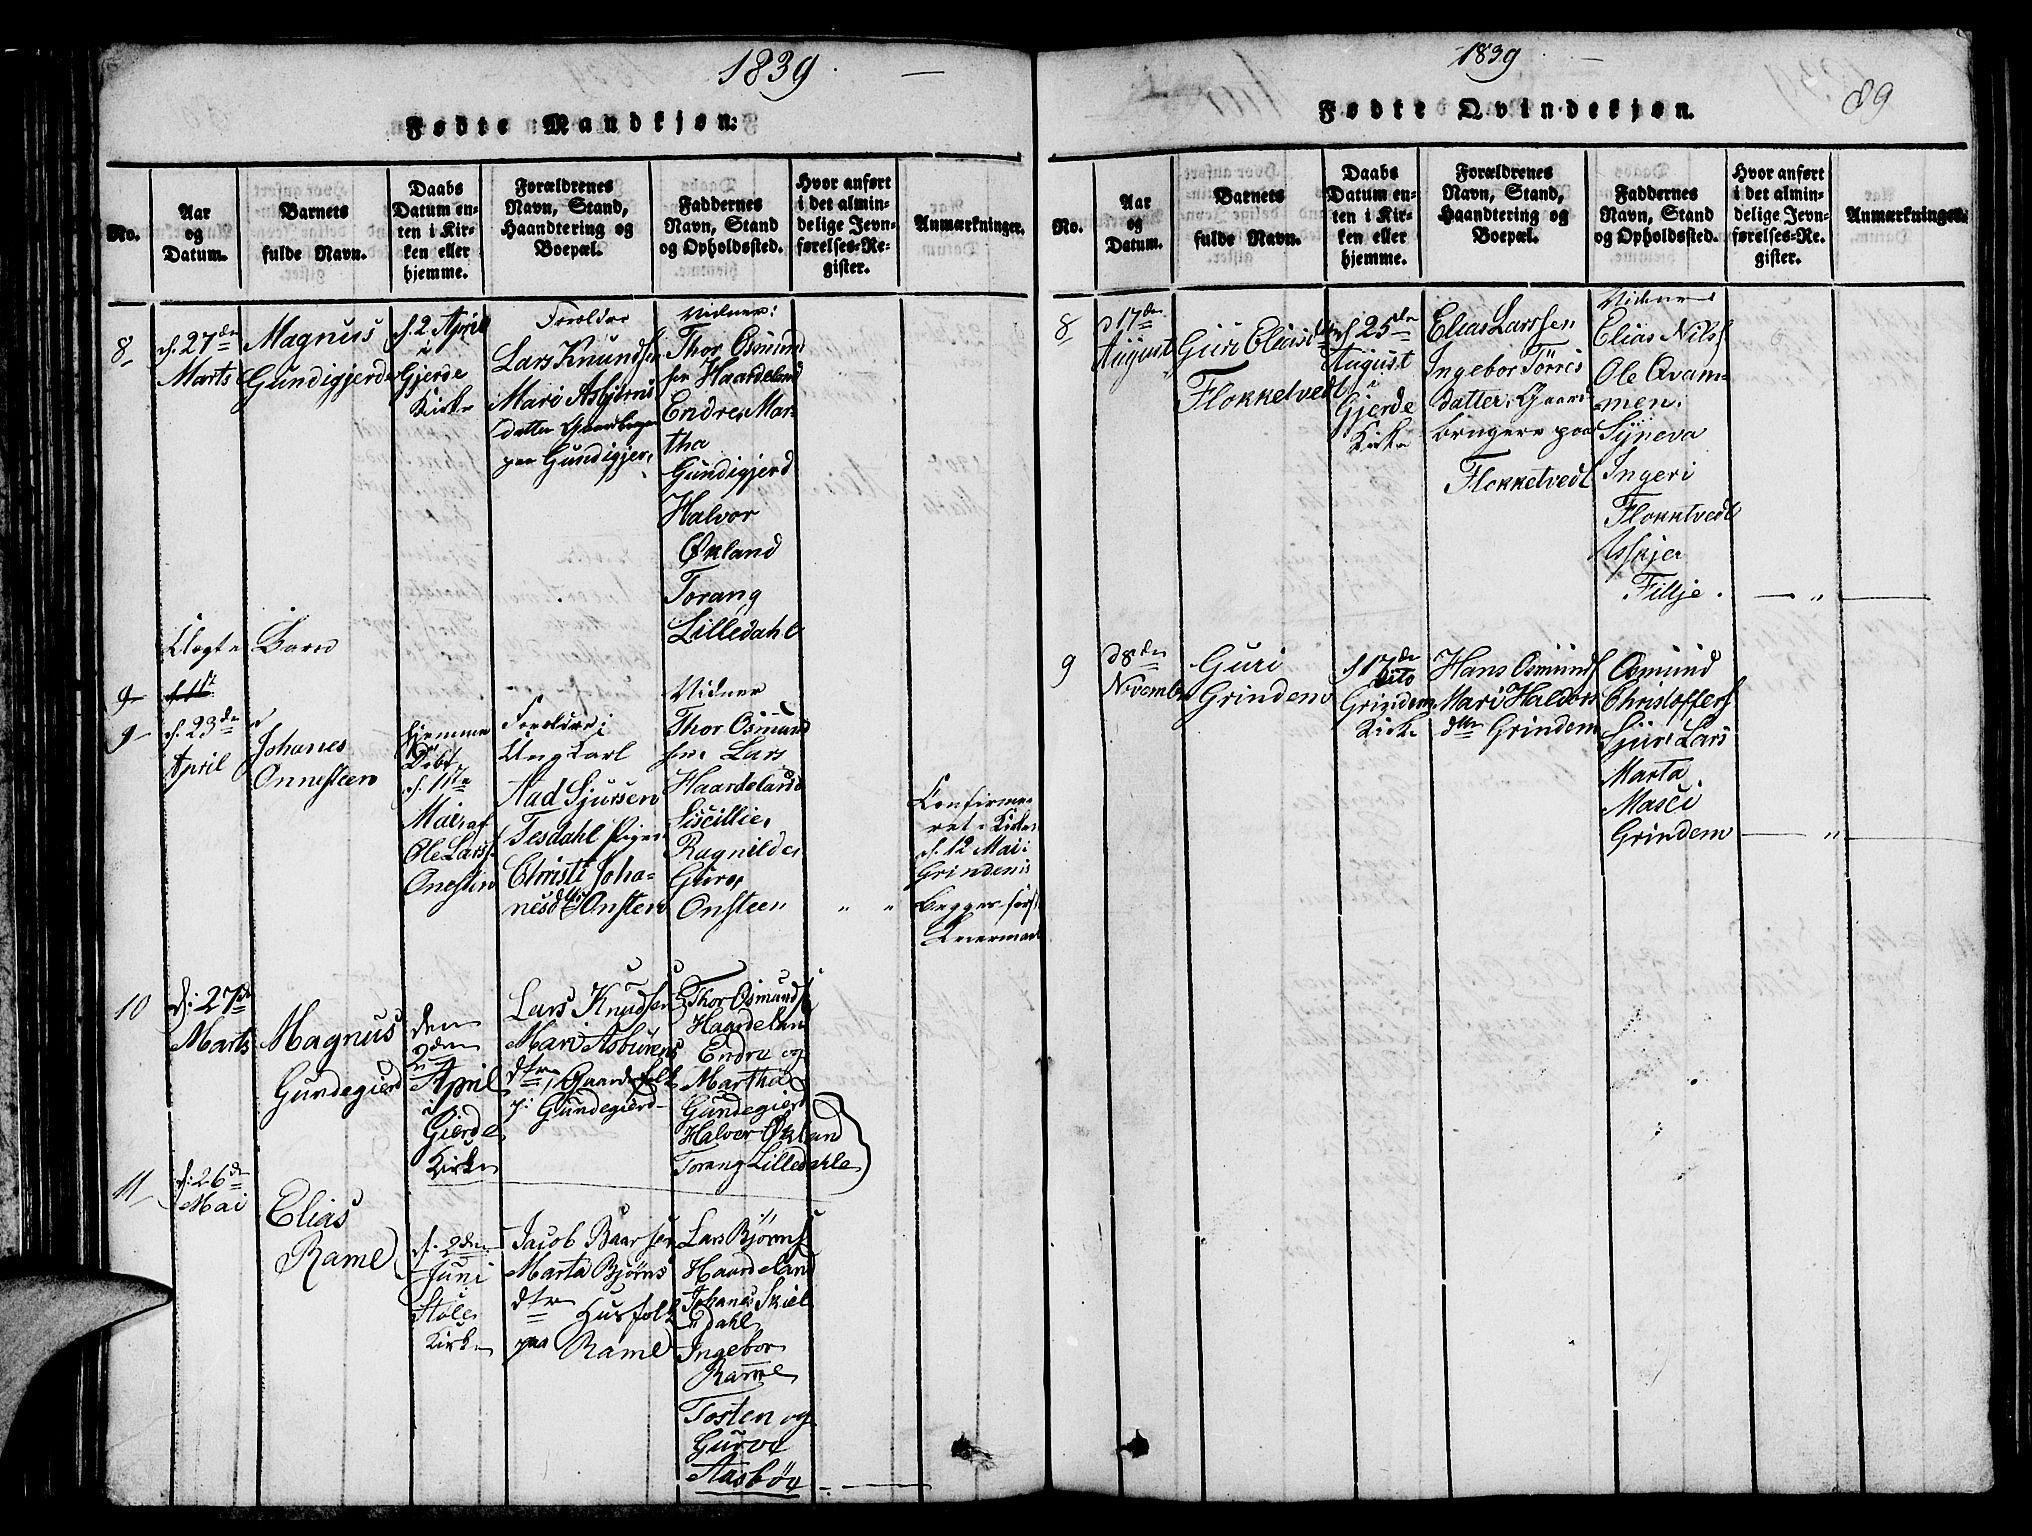 1839.
Fødte Mandkjøn:
No.
Aar
og
Datum.
Barnets
fulde Navn.
Daabs
Datum en-
ten i Kir-
ken eller
hjemme.
Forældrenes
Navn, Stand,
Haandtering og
Boepæl.
Faddernes
Navn, Stand
og Opholdssted.
Hvor anført
i det almin-
delige Jevn-
førelses-Re-
gister.
Anmærkninger.
8
d. 27de
Marts
Magnus
Gundigjerde
d. 2 April
i
Gjerde
Kirke
Foreldre
Lars Knudsen
Mari Asbjørns
datter Gaardbruger
paa Gundigjer
Vidner:
Thor Osmund
sen Haardeland
Endre, Mar
tha
Gundigjerd
Halvor
Økland
Torang
Lilledahl
Uægte Barn
9
9
d. 23de
April
Johanes
Onnesteen
hjemme
Døbt
d. 11te
Mai af
Ole Larss.
Onesten
Foreldre;
Ungkarl
Aad Sjursen
Tesdahl Pigen
Christi Joha-
nesdtr Onsten
Vidner
Thor Osmund
sen Lars
Haardeland
Siscillie,
Ragnilde
Guro,
Onsteen
" "
Confirme-
ret i Kirke
d. 12 Mai i
Grindem
Begges første
Leiermaal
10
d. 27de
Marts
Magnus
Gundegierd
den
2den
April
i
Gierde
Kirke
Lars Knudsen
Mari Asburens
dtr, Gaardfolk
p: Gundegierd
Thor Osmunds
Haardeland
Endre og
Martha
Gundegierd
Halver Økland
Torang Lilledahle
11
d. 26de
Mai
Elias
Rame
d. 2den
Juni
Støle
Kirke
Jacob Baarsen
Marta Bjørns
dtr Husfolk
paa Rame
Lars Bjørns
Haardeland
Johanes Skiel
dahl
Ingebor
Rame
Tosten og
Gurve
Aasbøe
1839
89
Fødte Qvindekjøn.
No.
Aar
og
Datum.
Barnets
fulde Navn.
Daabs
Datum en-
ten i Kir-
ken eller
hjemme.
Forældrenes
Navn, Stand,
Haandtering og
Boepæl.
Faddernes
Navn, Stand
og Opholdssted.
Hvor anført
i det almin-
delige Jevn-
førelses-Re-
gister.
Anmærkninger.
8
d 17de
August
Guri Eliasdtr
Flokketvedt
d 25de
August
i
Gjerde
Kirke
Elias Larssen
Ingebor Tørris
datter, Gaard
brugere paa
Flokketvedt
Vidner
Elias Nils
Ole Qvam-
men.
Syneva
Ingeri
Flokktvedt
Askjer
Fillje.
"
9
d 8de
Novembr
Guri
Grindem
d 17de
dito
Grindem
Kirke
Hans Osmunds
Mari Haldors
dtr Grindem
Osmund
Christoffers
Sjur Lars
Marta
Masci
Grindem
"